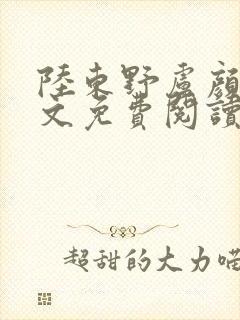 陸東野盧顔
文免費閱讀
超甜的大力喵